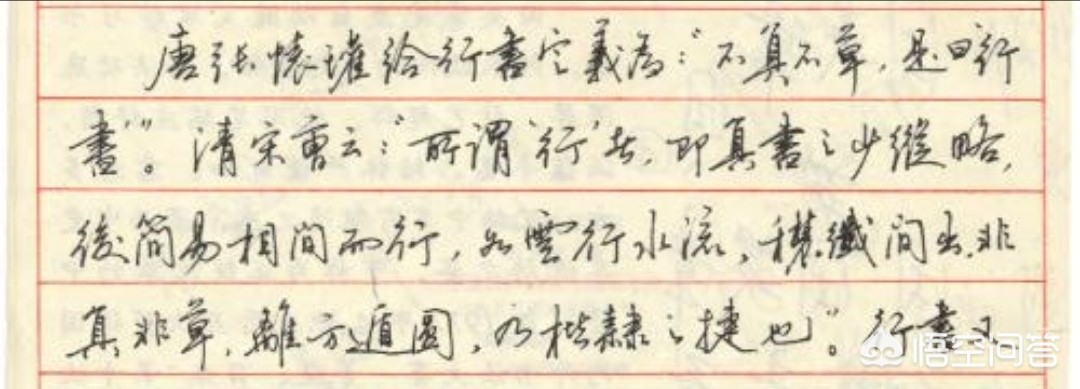 唐张懷瓘给行書定義為："不真不草，是曰行
書"。清宋曹云："所謂'行'者，即真書之少縱略，
後簡易相間而行，如雲行水流，穠纖間出，非
真非草，離方遁圓，乃楷隸之捷也"。行書又
悟空问答